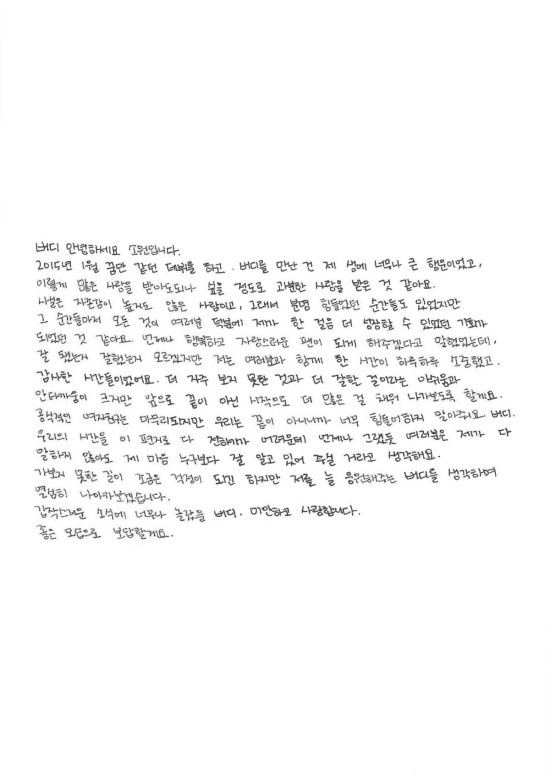 버디 안녕하세요 소원입니다.
2015년 1월 꿈만 같던 데뷔를 하고. 버디를 만난 건 제 생에 너무나 큰 행운이었고,
이렇게 많은 사랑을 받아도되나 싶을 정도로 과분한 사랑을 받은 것 같아요.
사실은 자존감이 높거도 않은 사람이고, 그래서 분명 힘들었던 순간들도 있었지만
그 순간들마저 모든 것이 여러분 덕분에 제가 한 걸음 더 성장할 수 있었던 기회가
되었던 것 같아요. 언제나 행복하고 자랑스러운 팬이 되게 해주겠다고 말했었는데,
잘 됐는지 잘했는지 모르겠지만 저는 여러분과 함께 한 시간이 하루하루 소중했고.
감사한 시간들이었어요. 더 자주 보지 못한 것과 더 잘할 걸이라는 아쉬움과
안타까움이 크지만 앞으로 끝이 아닌 시작으로 더 많은 걸 채워 나가보도록 할게요.
공식적인 여자친구는 마무리되지만 우리는 끝이 아니니까 너무 힘들어하지 말아주세요 버디.
우리의 시간을 이 편지로 다 전하기가 어려운데 언제나 그랬듯 여러분은 제가 다
말하지 않아도 제 마음 누구보다 잘 알고 있어 주실 거라고 생각해요.
가보지 못한 길이 조금은 걱정이 되긴 하지만 저를 늘 응원해주는 버디를 생각하며
열심히 나아가보겠습니다.
갑작스러운 소식에 너무나 놀랐을 버디. 미안하고 사랑합니다.
좋은 모습으로 보답할게요.